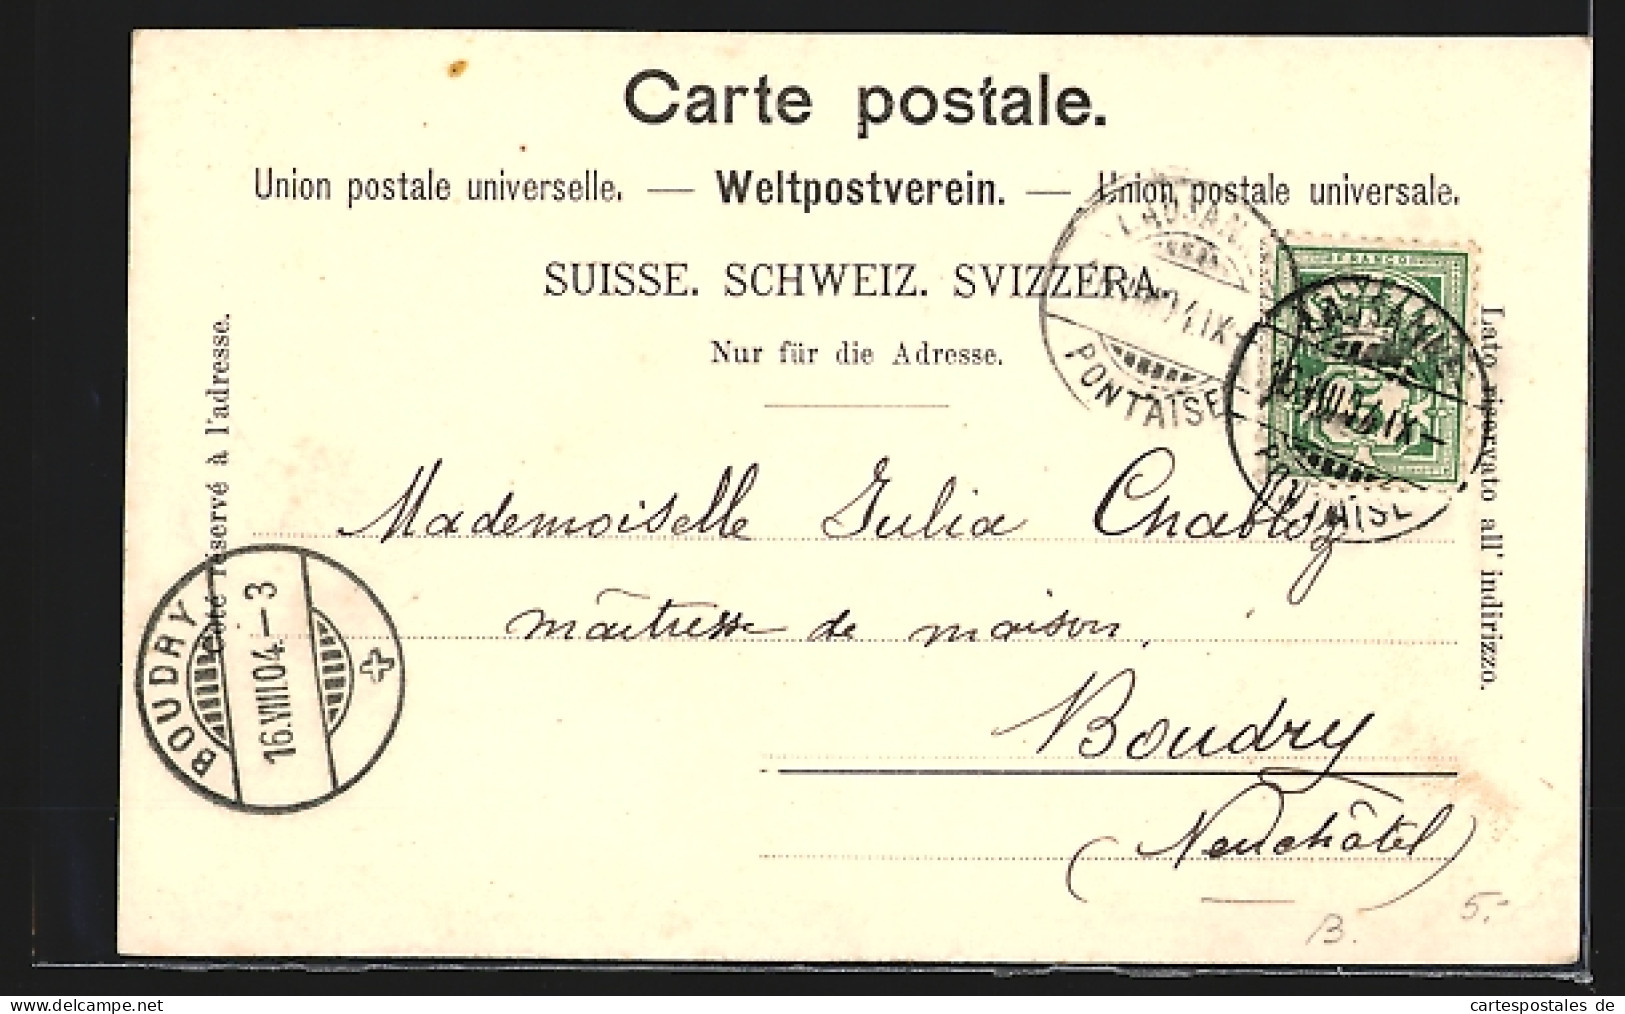 Carte postale.
Union postale universelle. — Weltpostverein. — Union postale universale.
SUISSE. SCHWEIZ. SVIZZERA.
Nur für die Adresse.
Côté réservé à l'adresse.
Lato riservato all' indirizzo.
PONTAISE
FRANCO
LAUSANNE
16.VIII.04.IX-
PONTAISE
Mademoiselle Julia Chabloz
maîtresse de maison,
Boudry
(Neuchâtel)
BOUDRY
16.VIII.04.-3
B.
5.-
www.delcampe.net
cartespostales de